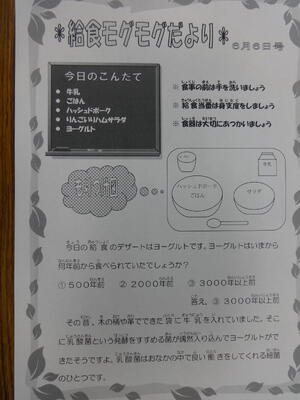 ＊給食モグモグだより＊
6月6日号
今日のこんだて
● 牛乳
● ごはん
● ハッシュドポーク
● りんごいりハムサラダ
● ヨーグルト
※ 食事の前は手を洗いましょう
※ 給食当番は身支度をしましょう
※ 食器は大切にあつかいましょう
牛乳
ハッシュドポーク
ごはん
サラダ
今日の給食のデザートはヨーグルトです。ヨーグルトはいまから
何年前から食べられていたでしょうか？
① 500年前　② 2000年前　③ 3000年以上前
答え、③ 3000年以上前
その昔、木の桶や革でできた袋に牛乳を入れていました。そこ
に乳酸菌という発酵をすすめる菌が偶然入り込んでヨーグルトがで
きたそうですよ。乳酸菌はおなかの中で良い働きをしてくれる細菌
のひとつです。